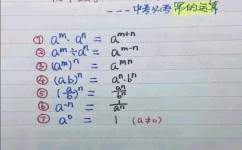 ---中考必考 幂的运算
① aᵐ·aⁿ = aᵐ⁺ⁿ
② aᵐ÷aⁿ = aᵐ⁻ⁿ
③ (aᵐ)ⁿ = aᵐⁿ
④ (ab)ⁿ = aⁿ·bⁿ
⑤ (a/b)ⁿ = aⁿ/bⁿ
⑥ a⁻ⁿ = 1/aⁿ
⑦ a⁰ = 1 (a≠0)